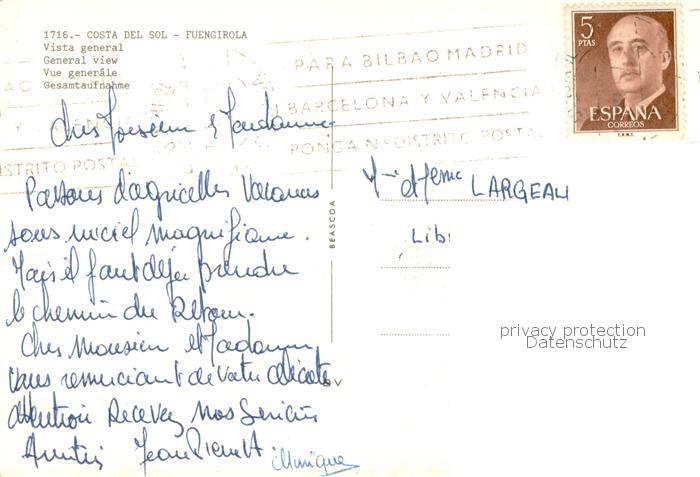 1716.- COSTA DEL SOL - FUENGIROLA
Vista general
General view
Vue generále
Gesamtaufnahme
PARA BILBAO MADRID
BARCELONA Y VALENCIA
PONGA Nº DISTRITO POSTAL
STRITO POSTAL
5
PTAS
ESPAÑA
CORREOS
F.N.M.T.
Cher Monsieur et Madame.
Passons d'agréables Vacances
sous un ciel magnifique.
Mais il faut déjà prendre
le chemin du Retour.
Cher Monsieur et Madame
Vous remerciant de votre délicate
attention Recevez Nos Sincères
Amitiés Jean Pierre
Monique
BEASCOA
BV
Mr et Mme LARGEAU
Lib
privacy protection
Datenschutz